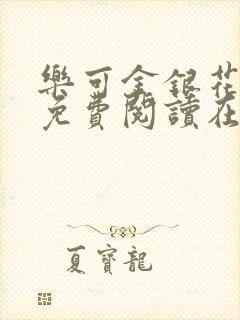 樂可金銀花
免費閱讀在
夏寶龍